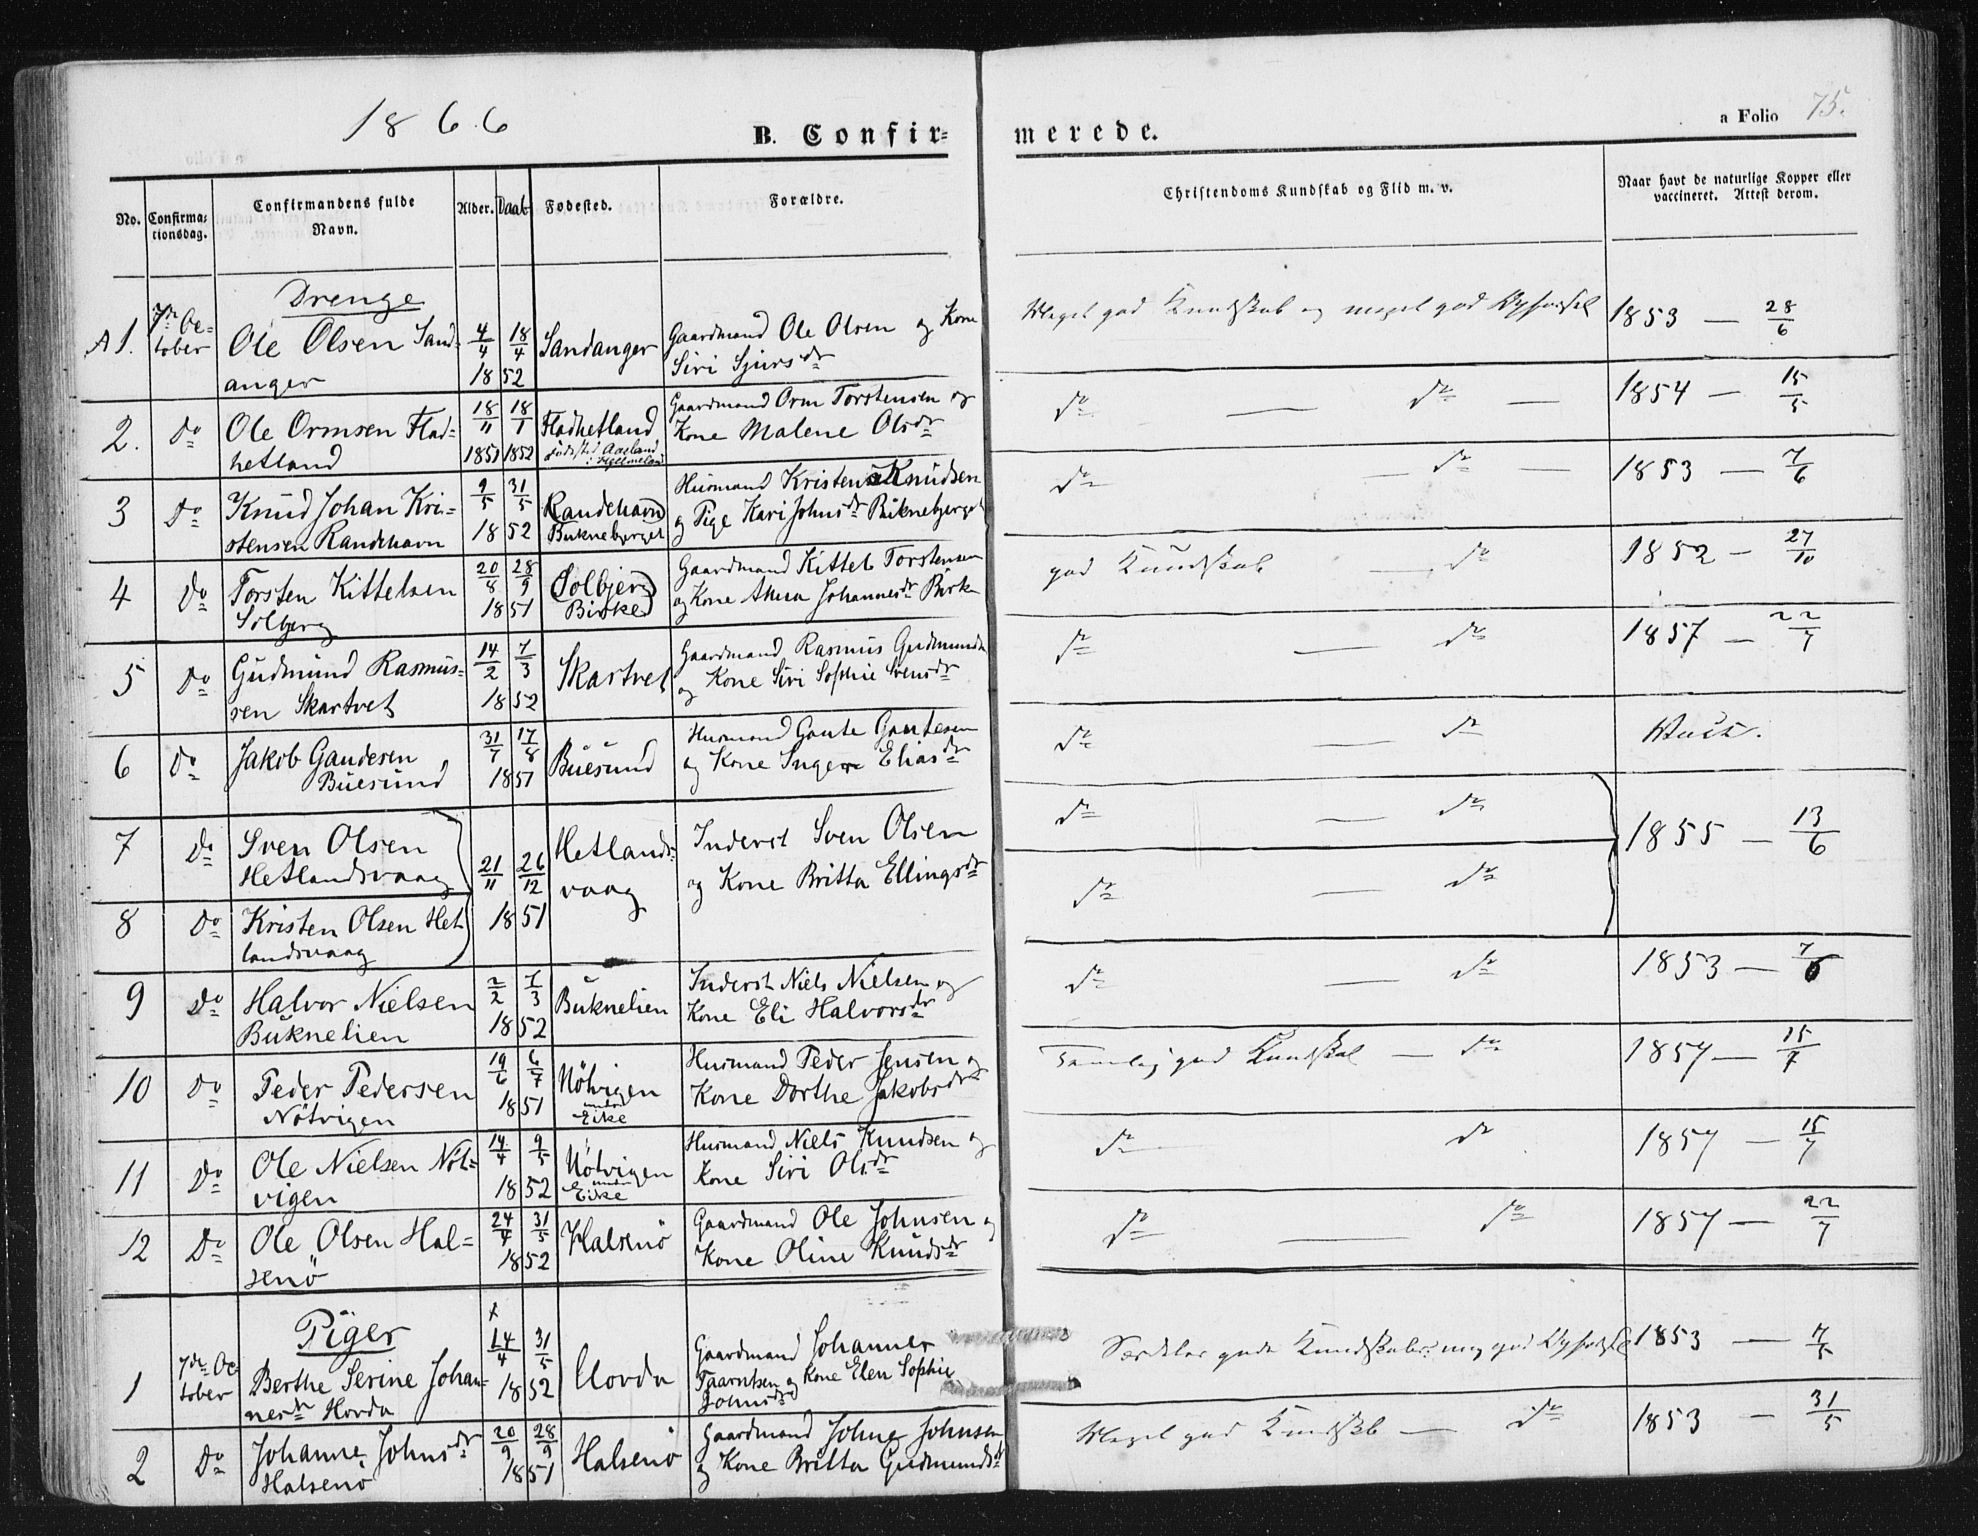 1866
B. Confirmerede.
a Folio 75.
No.
Confirmationsdag.
Confirmandens fulde Navn.
Alder.
Daab
Fødested.
Forældre.
Christendoms Kundskab og Flid m. v.
Naar havt de naturlige Kopper eller vaccineret. Attest derom.
Drenge
A 1. 7de October Ole Olsen Sandanger 4/4 18/4 1852 Sandanger Gaardmand Ole Olsen og Kone Siri Sjursdr Meget god Kundskab og meget god 1853 — 28/6
2. Do Ole Ormsen Fladhetland 18/11 1851 18/1 1852 Fladhetland Fødested Aaeland Hjelmeland Gaardmand Orm Torstensen og Kone Malene Olsdr do — do — 1854 — 15/5
3 Do Knud Johan Kristensen Randehavn 9/5 31/5 1852 Randehavn Buknebjerget Husmand Kristen Knudsen og Pige Kari Johnsdr Buknebjerget do — do 1853 — 7/6
4 Do Torsten Kittelsen Solbjerg 20/8 28/9 1851 Solbjerg Birke Gaardmand Kittel Torstensen og Kone Anna Johannesdr Birke god Kundskab — do 1852 — 27/10
5 Do Gudmund Rasmussen Skartvet 14/2 7/3 1852 Skartvet Gaardmand Rasmus Gudmunds og Kone Siri Sophie Svensdr do — do 1857 — 22/7
6 Do Jakob Gaudesen Buesund 31/7 17/8 1851 Buesund Husmand Gaute Gautesen og Kone Inger Eliasdr do — do
7 Do Sven Olsen Hetlandsvaag 21/11 26/12 1851 Hetlandsvaag Inderst Sven Olsen og Kone Britta Ellingsdr do — do 1855 — 13/6
8 Do Kristen Olsen Hetlandsvaag do — do
9 Do Halvor Nielsen Buknelien 2/2 7/3 1852 Buknelien Inderst Niels Nielsen og Kone Eli Halvorsdr do — do 1853 — 7/6
10 Do Peder Pedersen Nötvigen 19/6 6/7 1851 Nötvigen under Eike Husmand Peder Jensen og Kone Dorthe Jakobsdr Temmelig god Kundskab — do 1857 — 15/7
11 Do Ole Nielsen Nötvigen 14/4 9/5 1852 Nötvigen under Eike Husmand Niels Knudsen og Kone Siri Olsdr do do 1857 — 15/7
12 Do Ole Olsen Halsenö 24/4 31/5 1852 Halsenö Gaardmand Ole Johnsen og Kone Oline Knudsdr do — do 1857 — 22/7
Piger
1 7de October Berthe Serine Johannesdr Hovda 24/4 31/5 1852 Hovda Gaardmand Johannes Taarntsen og Kone Elen Sophie Johnsdr Kundskaber god 1853 — 7/5
2 Do Johanne Johnsdr Halsenö 20/9 28/9 1851 Halsenö Gaardmand Johne Johnsen og Kone Britta Gudmundsdr Meget god Kundskb — do 1853 — 31/5